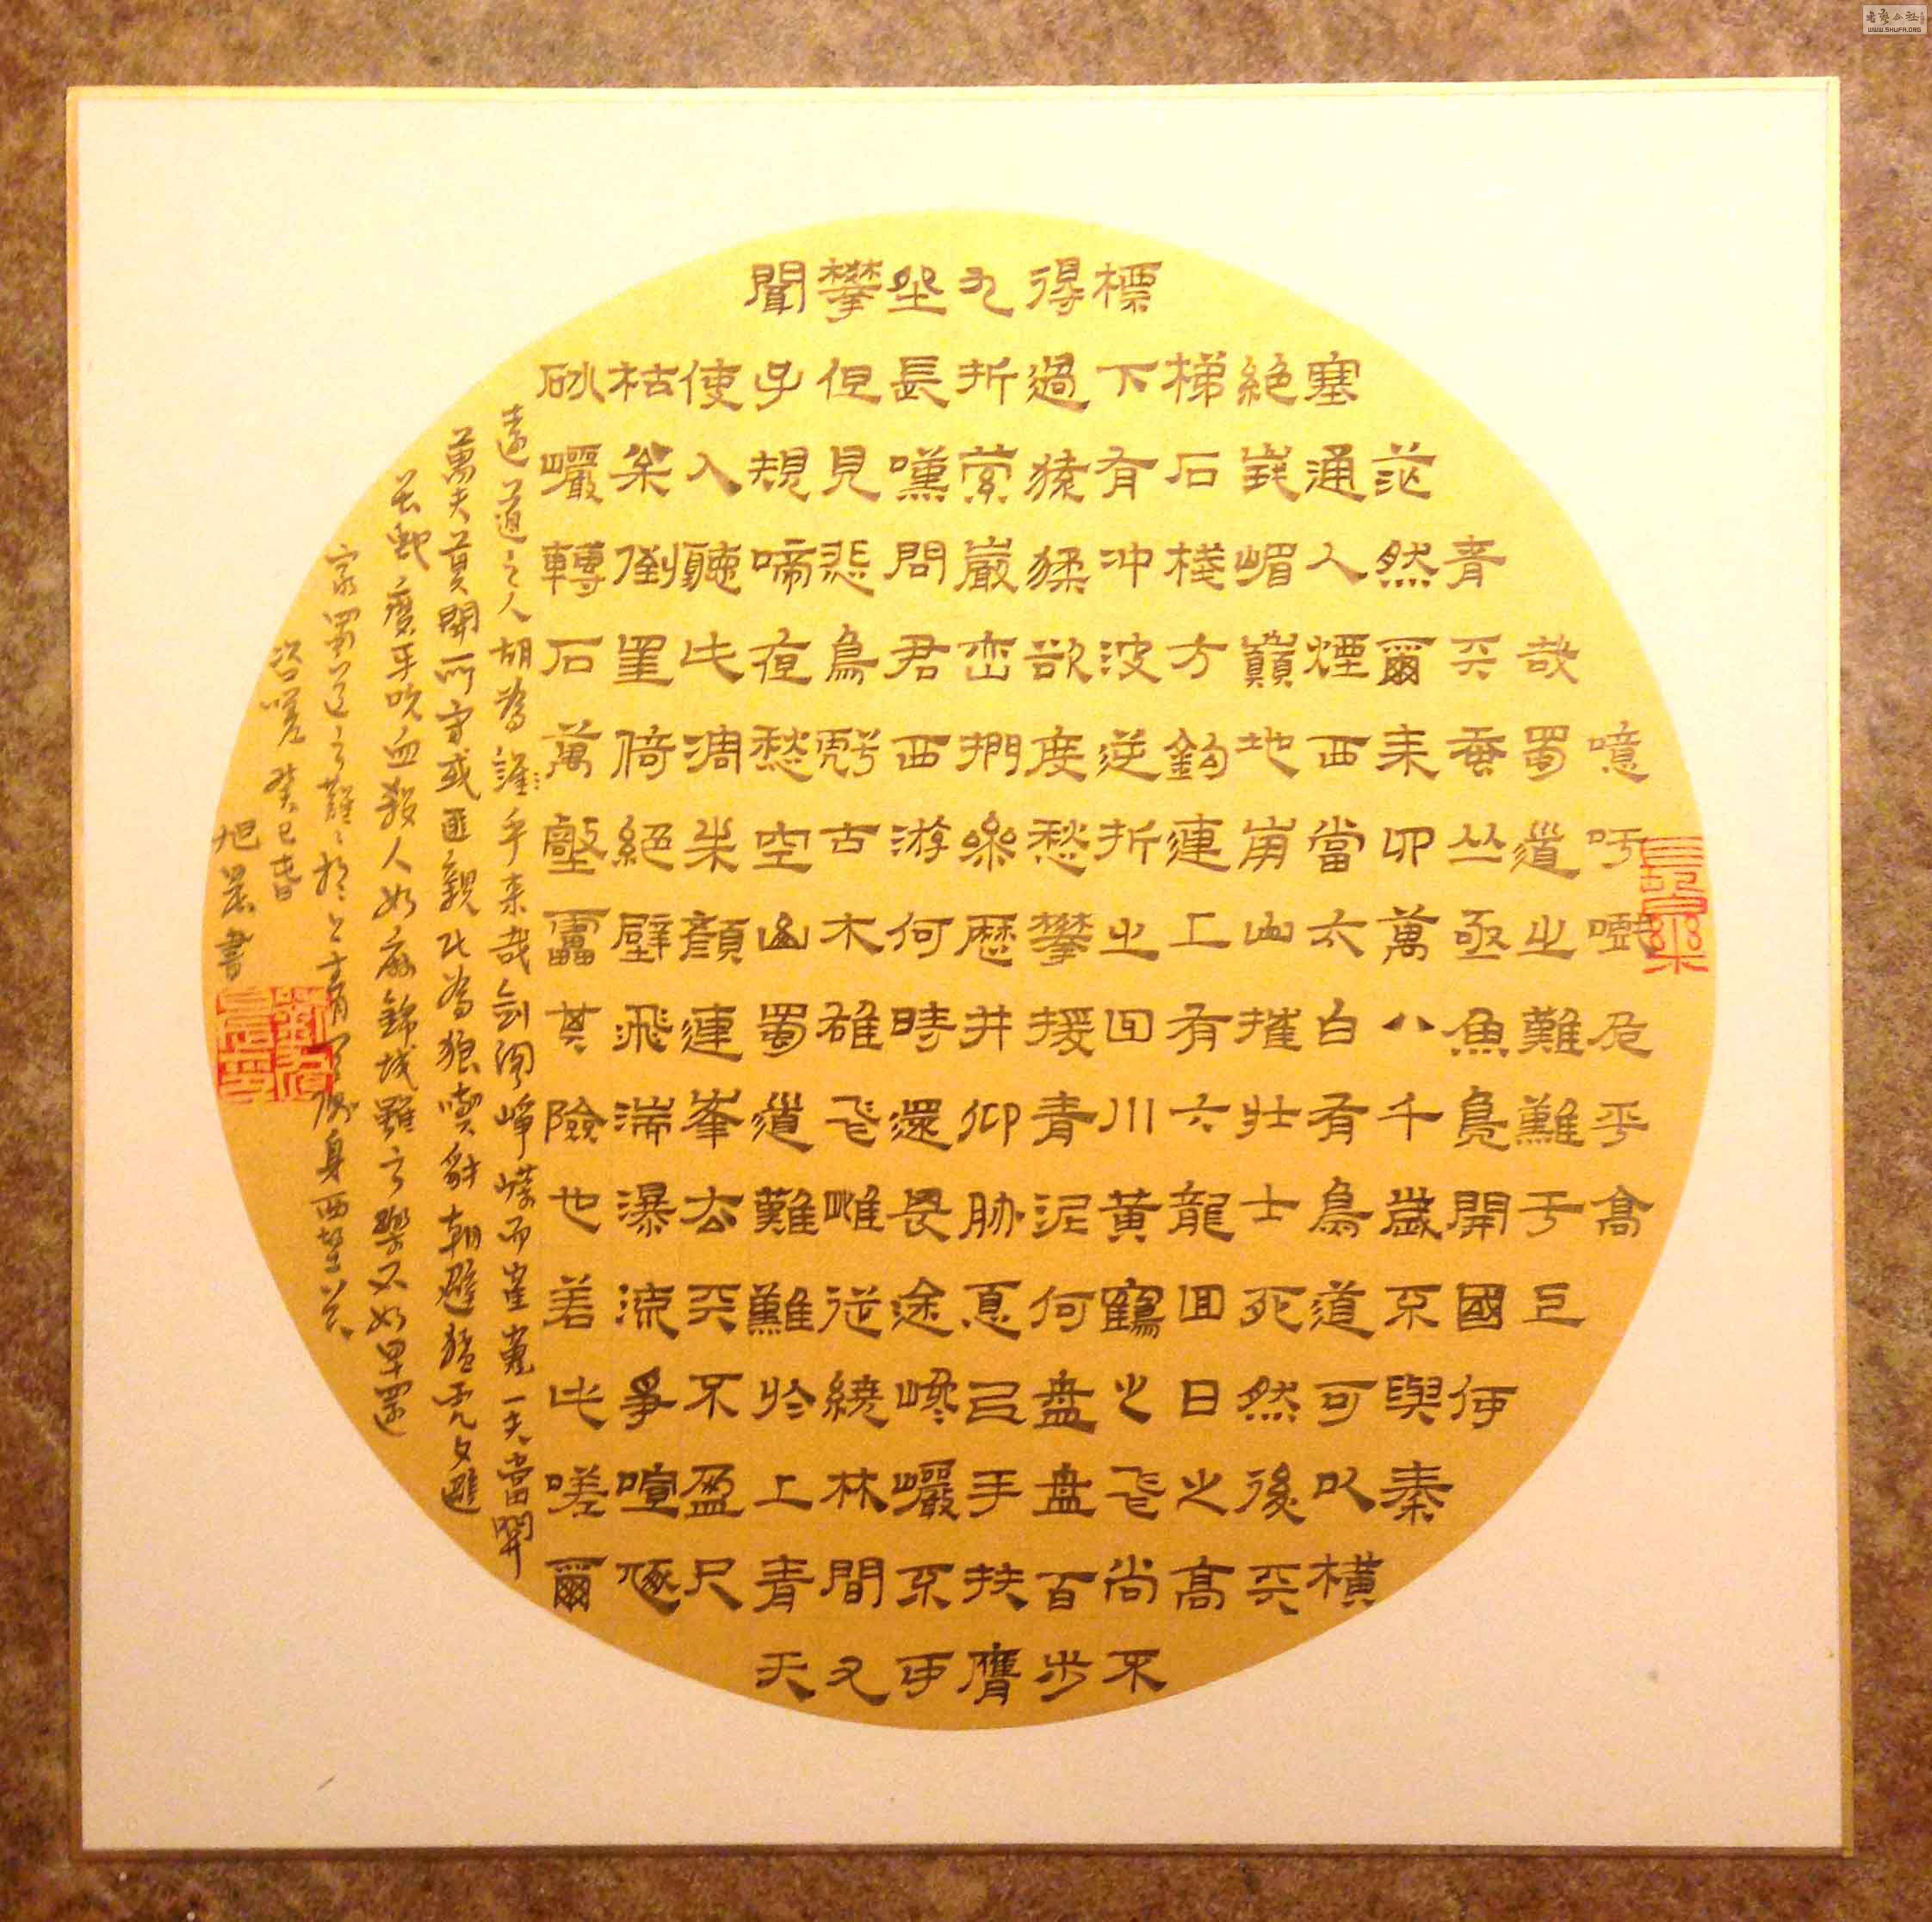 噫吁嚱危乎高
哉蜀道之難難于上
青天蚕丛亟魚鳧開國何
茫然爾来四萬八千歲不與秦
塞通人煙西當太白有鳥道可以橫
絕峨嵋巔地崩山摧壯士死然後天
梯石棧方鈎連上有六龍回日之高
標下有沖波逆折之回川黃鶴之飛尚不
得過猿猱欲度愁攀援青泥何盘盘百步
九折縈巖峦捫參歷井仰胁息以手扶膺
坐長嘆問君西游何時還畏途巉巖不可
攀但見悲鳥號古木雄飛雌從繞林間又
聞子規啼夜愁空山蜀道難難於上青天
使人聽此凋朱顏連峯去天不盈尺
枯松倒挂倚絕壁飛湍瀑流爭喧豗
砅巖轉石萬壑靁其險也若此嗟爾
遠道之人胡為謹乎来哉劍閣崢嶸而崔嵬一夫當關
萬夫莫開所守或匪親化為狼與豺朝避猛虎夕避
長蛇磨牙吮血殺人如麻錦城雖云樂不如早還
家蜀道之難難於上青天側身西望長
咨嗟 癸巳春
旭書
WWW.SHUFA.ORG